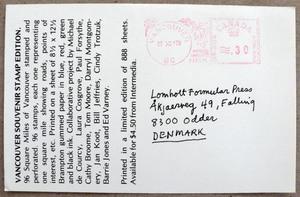 VANCOUVER SOUVENIR STAMP EDITION
96 Square Miles of Vancouver stamped and
perforated. 96 stamps, each one representing
one square mile showing roads, points of
interest, etc. Printed on a sheet of 8½ x 12½
Brampton gummed paper in blue, red, green
and black ink. Collaborative project by Michael
de Courcy, Laura Cosgrove, Paul Forsythe,
Cathy Broome, Tom Moore, Darryl Montgom-
ery, Jan Koot, Bill Jeffries, Cindy Trotzuk,
Barrie Jones and Ed Varney.
Printed in a limited edition of 888 sheets.
Available for $4.50 from Intermedia.
VANCOUVER
BC
CANADA
.30
Lomholt Formular Press
Akjaervej 49, Falling
8300 Odder
DENMARK